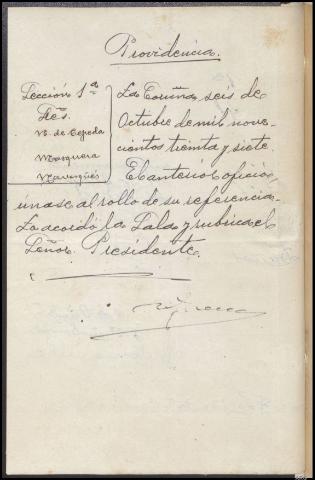 Providencia.
Sección 1ª
Srs.
V. de Cepeda
Mosquera
La Coruña, seis de
Octubre de mil nove-
cientos treinta y siete.
El anterior oficio,
unase al rollo de su referencia.
Lo acordó la Sala y rubrica el
Señor Presidente.